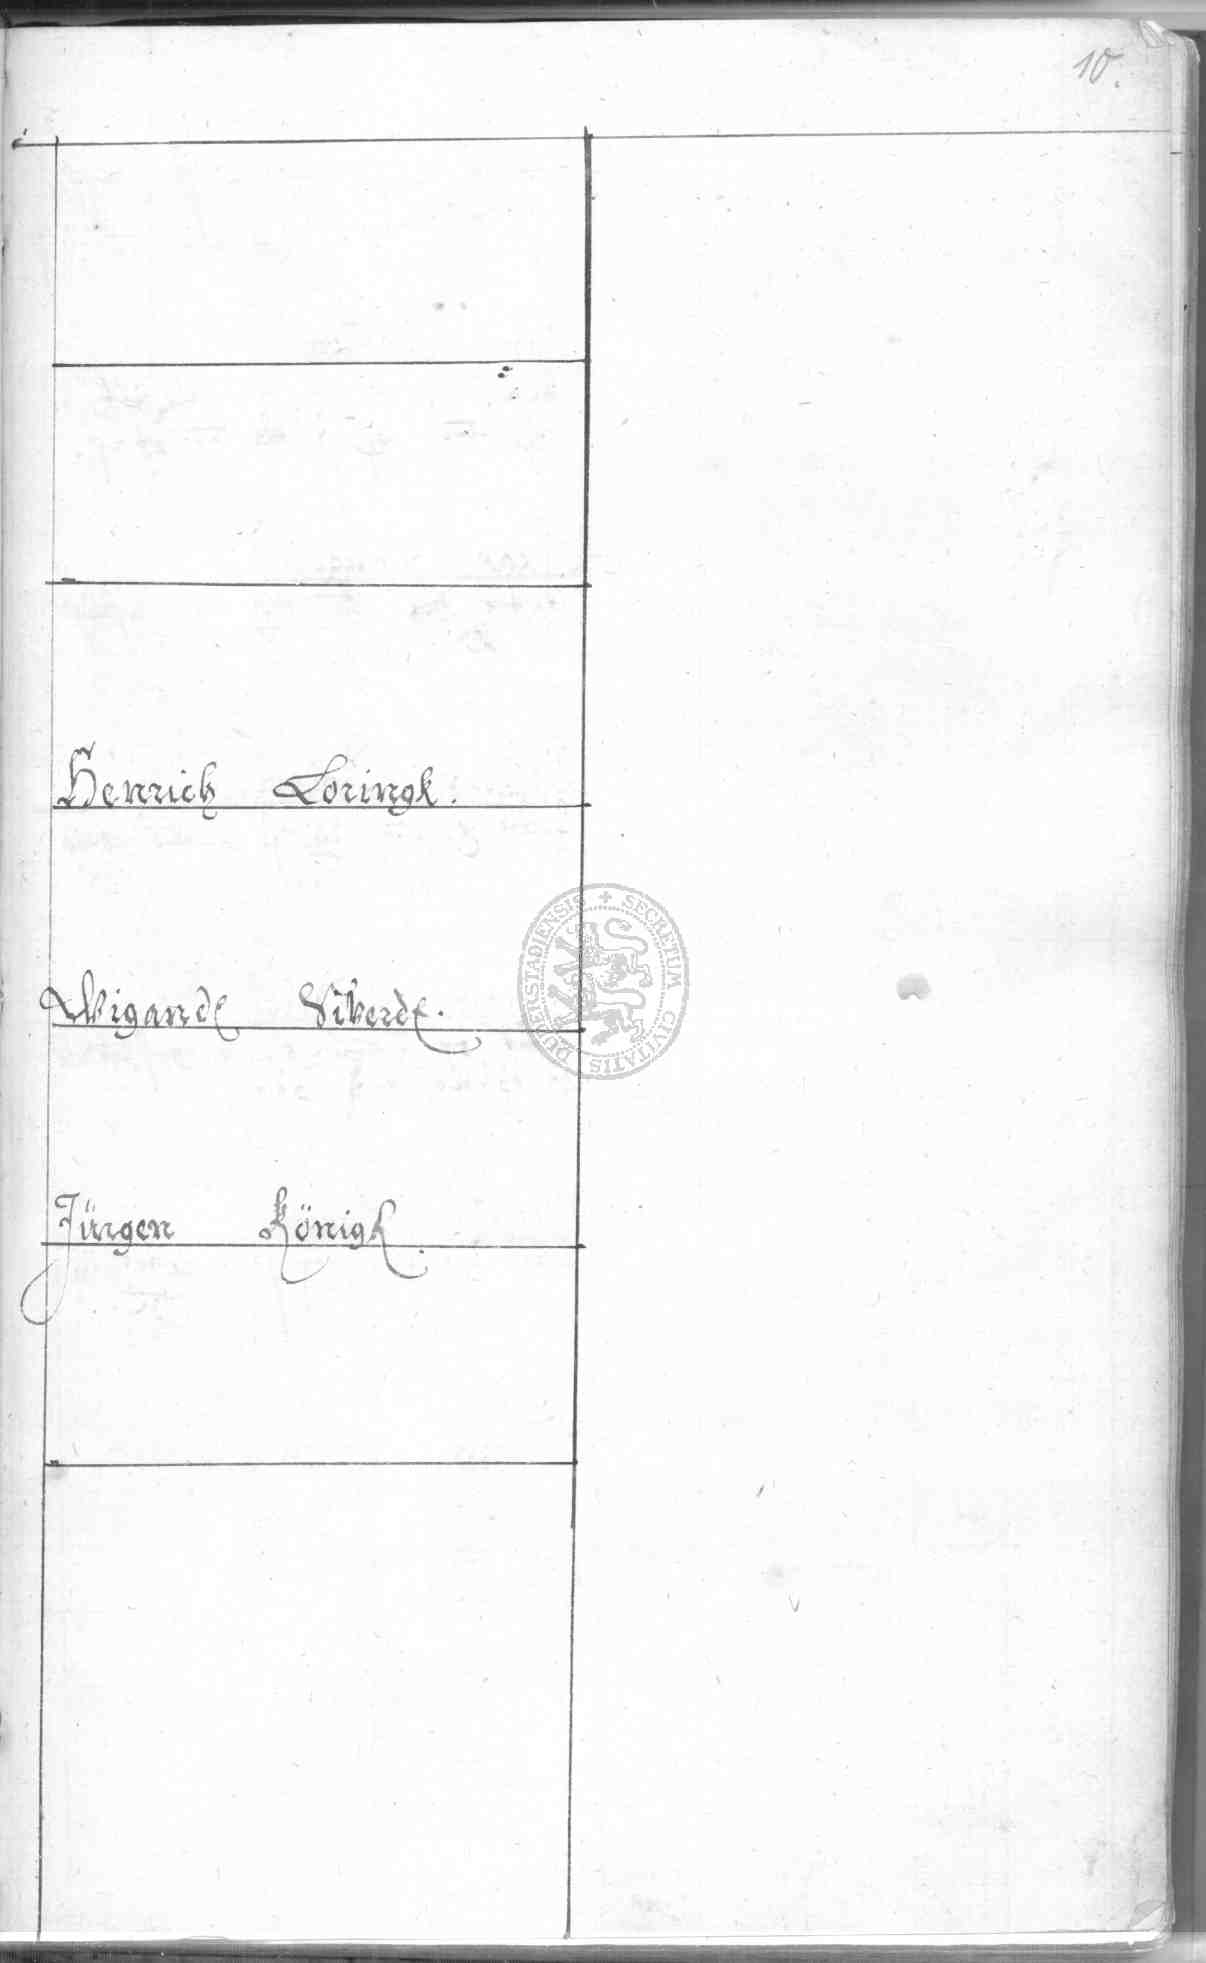 10.
Henrich Loringk.
SECRETUM CIVITATIS DUDERSTADIENSIS
Wigandt
Jürgen Königk.